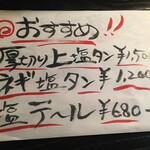 おすすめ!!
厚切り上塩タン ¥1,500
ネギ塩タン ¥1,200
塩テール ¥680-